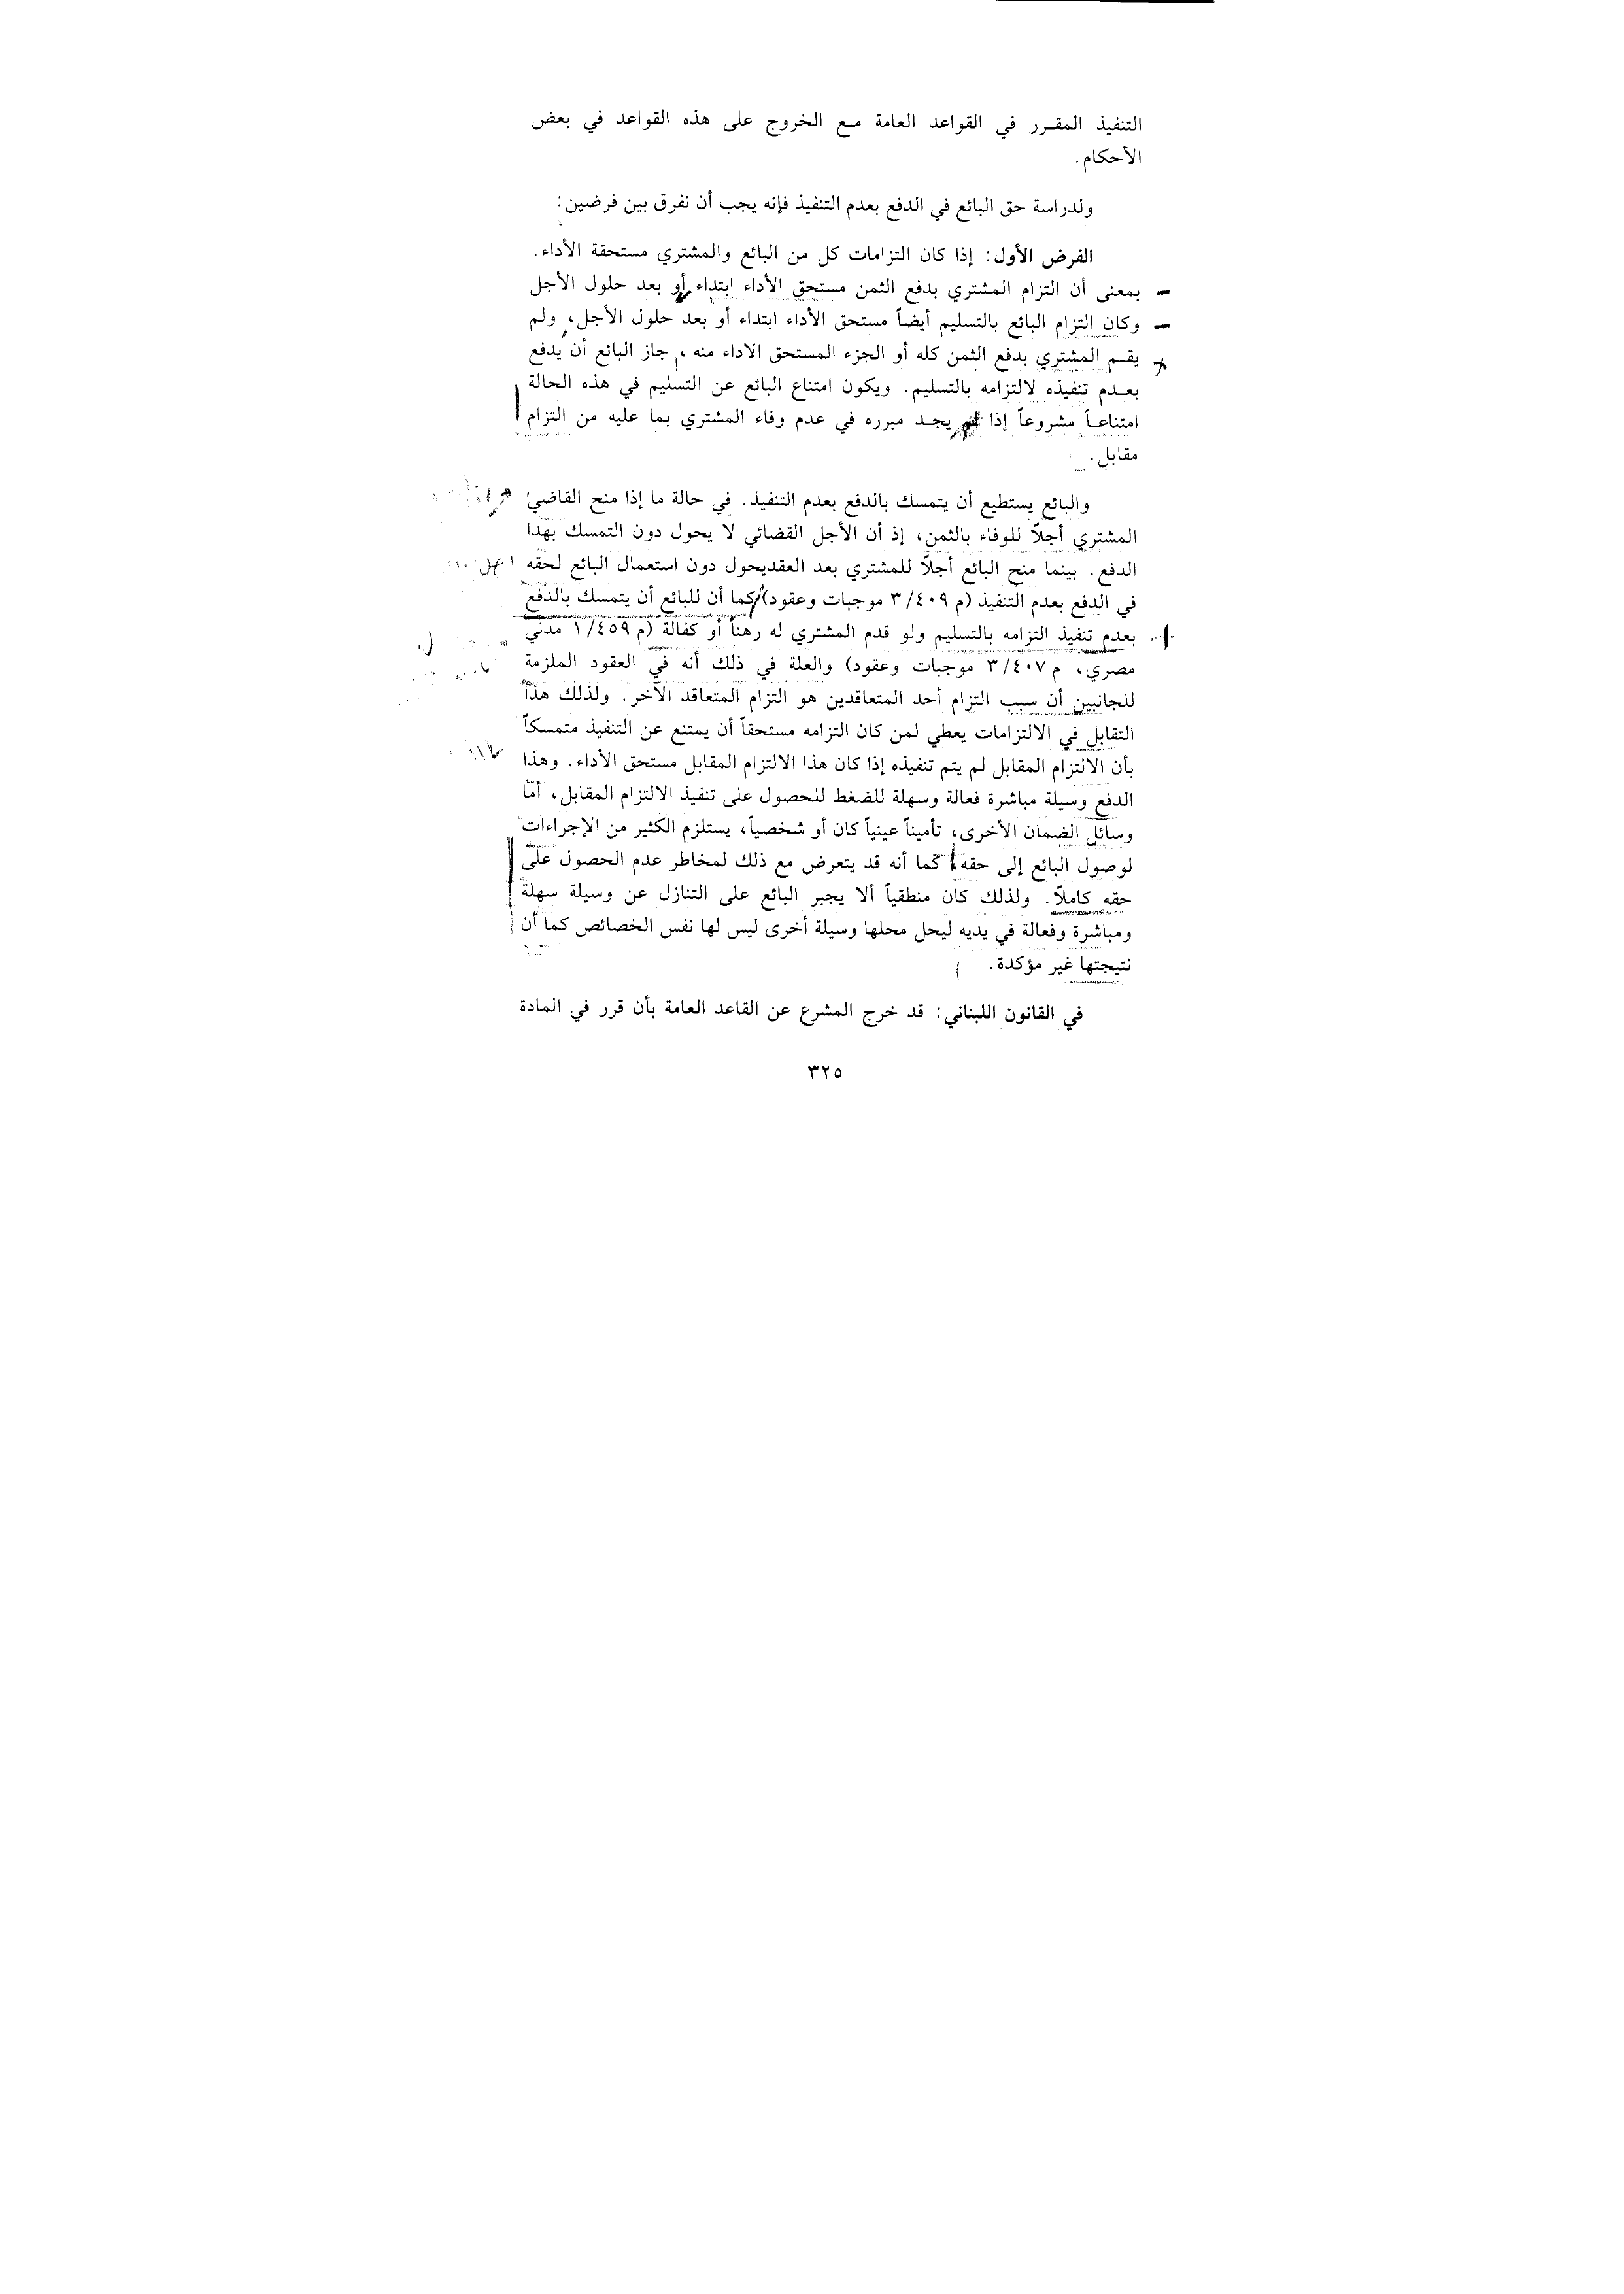 التنفيذ المقـرر في القواعد العامة مـع الخروج على هذه القواعد في بعض
الأحكام.
ولدراسة حق البائع في الدفع بعدم التنفيذ فإنه يجب أن نفرق بين فرضين:
الفرض الأول: إذا كان التزامات كل من البائع والمشتري مستحقة الأداء.
بمعنى أن التزام المشتري بدفع الثمن مستحق الأداء ابتداء أو بعد حلول الأجل
وكان التزام البائع بالتسليم أيضاً مستحق الأداء ابتداء أو بعد حلول الأجل، ولم
يقـم المشتري بدفع الثمن كله أو الجزء المستحق الاداء منه، جاز البائع أن يدفع
بعـدم تنفيذه لالتزامه بالتسليم. ويكون امتناع البائع عن التسليم في هذه الحالة
امتناعـاً مشروعاً إذا يجـد مبرره في عدم وفاء المشتري بما عليه من التزام
مقابل.
والبائع يستطيع أن يتمسك بالدفع بعدم التنفيذ. في حالة ما إذا منح القاضي
المشتري أجلاً للوفاء بالثمن، إذ أن الأجل القضائي لا يحول دون التمسك بهذا
الدفع. بينما منح البائع أجلاً للمشتري بعد العقديحول دون استعمال البائع لحقه
في الدفع بعدم التنفيذ (م ٣/٤٠٩ موجبات وعقود) كما أن للبائع أن يتمسك بالدفع
بعدم تنفيذ التزامه بالتسليم ولو قدم المشتري له رهناً أو كفالة (م ١/٤٥٩ مدني
مصري، م ٣/٤٠٧ موجبات وعقود) والعلة في ذلك أنه في العقود الملزمة
للجانبين أن سبب التزام أحد المتعاقدين هو التزام المتعاقد الآخر. ولذلك هذا
التقابل في الالتزامات يعطي لمن كان التزامه مستحقاً أن يمتنع عن التنفيذ متمسكاً
بأن الالتزام المقابل لم يتم تنفيذه إذا كان هذا الالتزام المقابل مستحق الأداء. وهذا
الدفع وسيلة مباشرة فعالة وسهلة للضغط للحصول على تنفيذ الالتزام المقابل، أما
وسائل الضمان الأخرى، تأميناً عينياً كان أو شخصياً، يستلزم الكثير من الإجراءات
لوصول البائع إلى حقه كما أنه قد يتعرض مع ذلك لمخاطر عدم الحصول على
حقه كاملاً. ولذلك كان منطقياً ألا يجبر البائع على التنازل عن وسيلة سهلة
ومباشرة وفعالة في يديه ليحل محلها وسيلة أخرى ليس لها نفس الخصائص كما أن
نتيجتها غير مؤكدة.
في القانون اللبناني: قد خرج المشرع عن القاعد العامة بأن قرر في المادة
٣٢٥